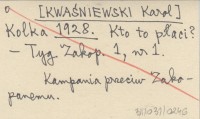 [KWAŚNIEWSKI Karol]
Kolka 1928. Kto to płaci?
– Tyg. Zakop. 1, nr 1.
Kampania przeciw Zako-
panemu.